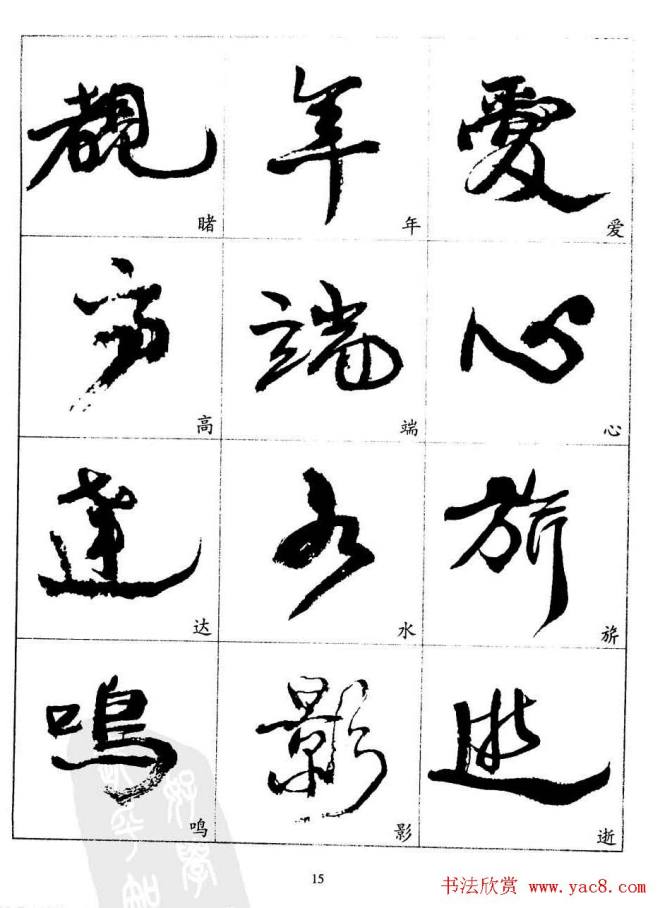 愛
爱
心
心
旂
旂
逝
逝
年
年
端
端
水
水
影
影
覩
睹
高
高
達
达
鳴
鸣
15
书法欣赏 www.yac8.com